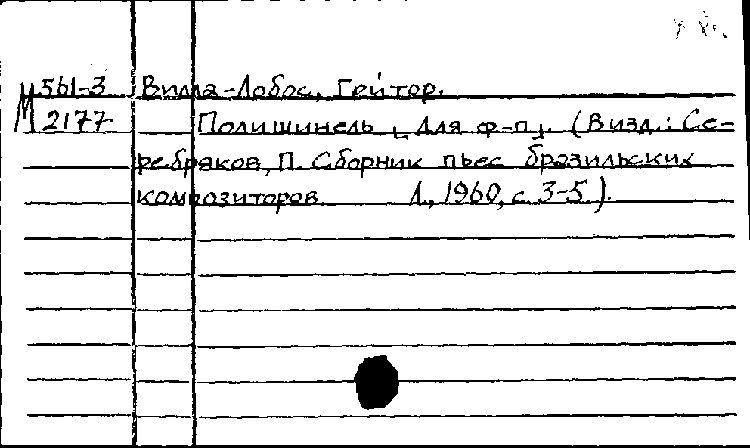 М 561-3 Вилла-Лобос, Гейтор.
2177 Полишинель [Для ф-п]. (В изд.: Се-
ребряков, П. Сборник пьес бразильских
композиторов. Л., 1960, с. 3-5).